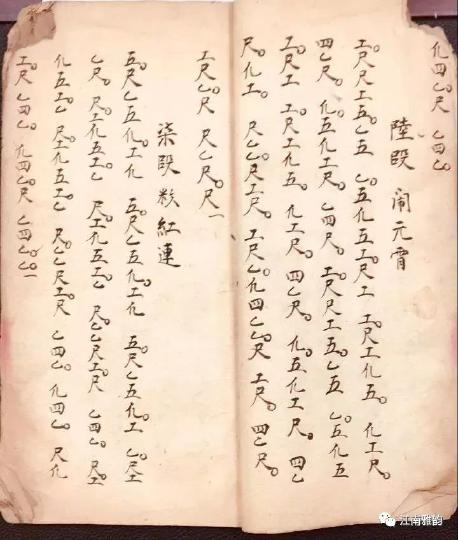 化四乙。尺 乙四乙。
陸段 闹元宵
工。尺尺工五。乙五 乙化五工。尺工 工。尺工化五。 化工尺。
四乙尺。 化五化工尺。 乙四尺。 工。尺尺工五。乙五 乙。五化五
工。尺工 工。尺工化五。 化工尺。 四乙尺。 化五化工尺。 四乙
尺。化工。 尺乙乙。尺工尺。 工尺乙。化四乙乙。尺 工尺。 四乙尺。
工尺乙。尺 尺乙尺。尺一
柒段 粉紅連
五。尺乙五化。工化 五。尺乙五化。工化 五。尺乙五。化工 乙。尺工
乙尺。 尺工化五工。乙 尺工化五工。乙 尺。乙乙尺工。尺 乙四乙。 尺工
化五工。乙 尺工化五工。乙 尺。乙乙尺工。尺 乙四乙。 化四乙。 尺化
工。尺 乙四乙。 化四乙。尺 乙四乙。乙。一
江南雅韵